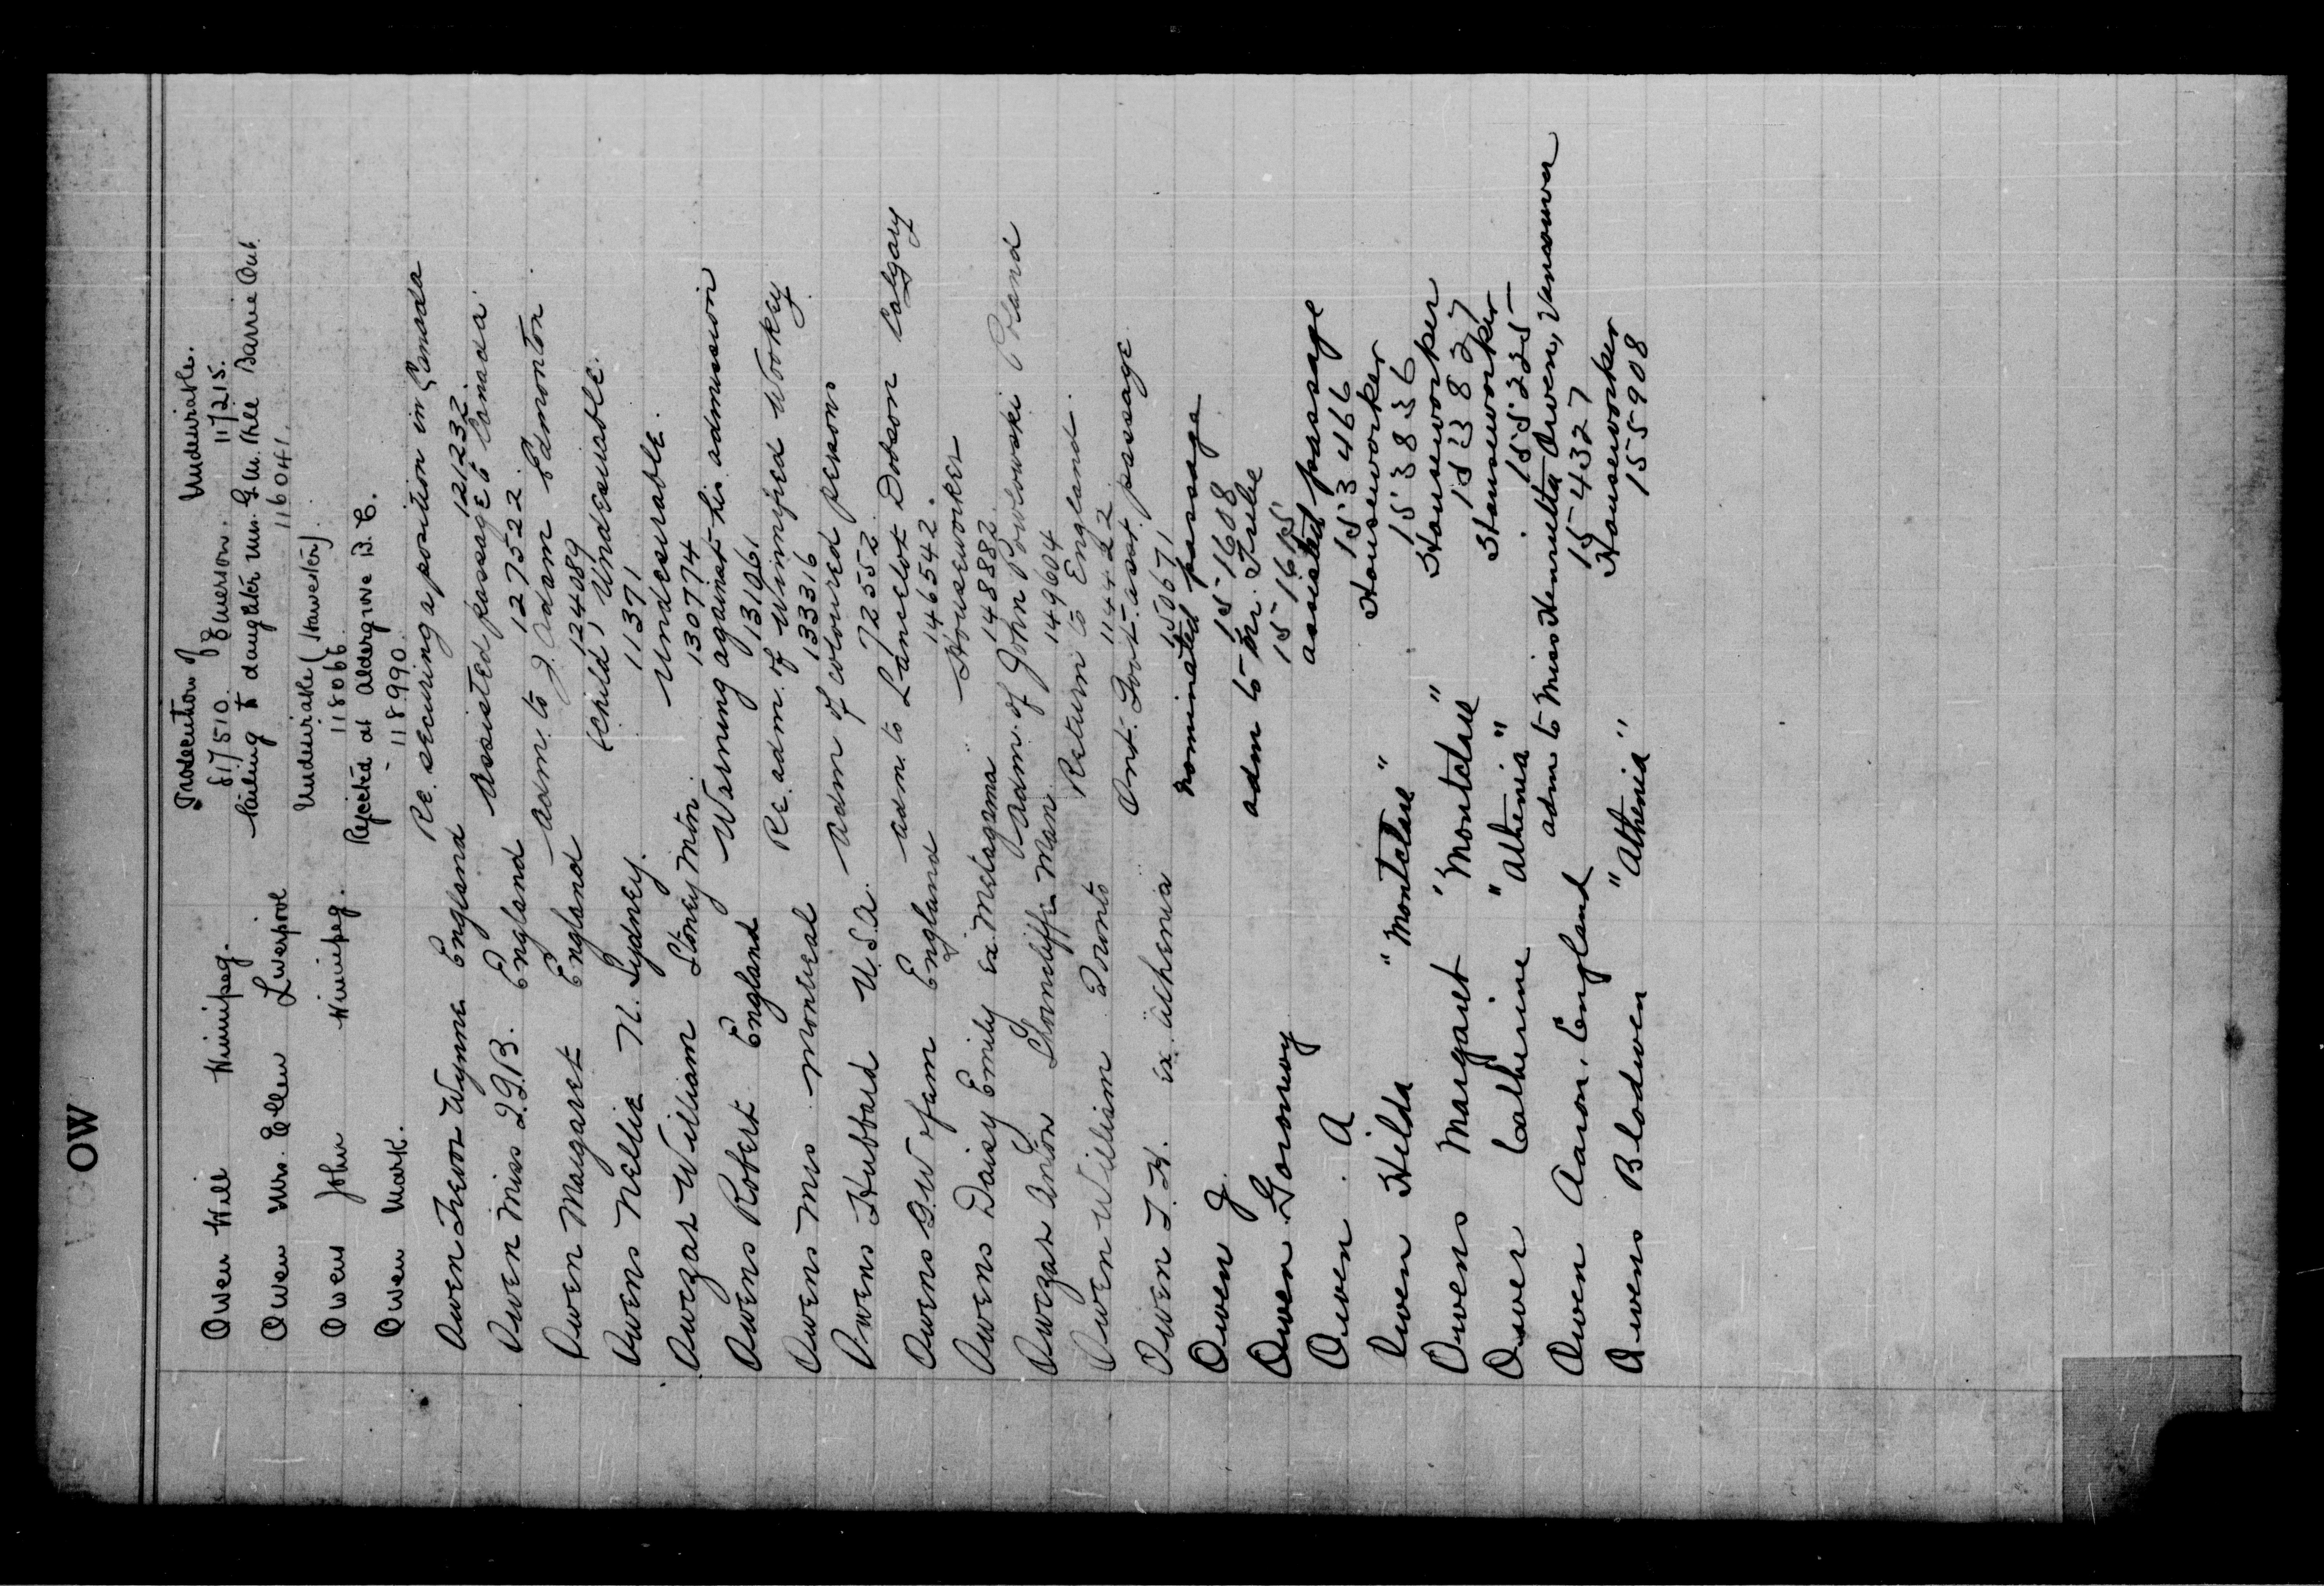 OW
Owen Will Winnipeg. Prosecution of Emerson. Undesirable.
817510. 117215.
Owen Mrs. Ellen Liverpool Sailing to daughter Mrs. G.W. Barrie Ont.
116041.
Owens John Winnipeg. Undesirable (Harvester)
118066
Owen Mark. Rejected at Aldergrove B.C.
118990.
Owen Trevor Wynne England Re. securing a position in Canada
121232.
Owen Miss England Assisted passage to Canada
127522.
Owen Margaret England adm. to J. Adam Edmonton
124089
Owens Nellie N. Sydney. (child) Undesirable.
11371
Owezar William Stoney Mtn. Undesirable.
130774
Owens Robert England Warning against his admission
131061
Owens Mrs Montreal Re. adm. of Winnifred Wookey
133316
Owens Hubbard U.S.A. adm of coloured persons
72552
Owens G.W & fam England adm. to Lancelot Dobson Calgary
146542.
Owens Daisy Emily ex. Metagama Houseworker
148882
Owezar Anton Man adm. of John Powlowski Poland
149604
Owen William Toronto Return to England.
114422
Owen T. H. ex. Athenia Ont. Govt. asst. passage
150671
Owen J. nominated passage
151608
Owen Goronwy adm to Mr.
151615
Owen. A assisted passage
153466
Owen Hilda "Montclare" Houseworker
153836
Owens Margaret "Montclare" Houseworker
153827
Owen Catherine "Athenia" Houseworker
155225
Owen Aaron, England adm to Miss Henrietta Owen, Vancouver
154327
Owens Blodwen "Athenia" Houseworker
155908